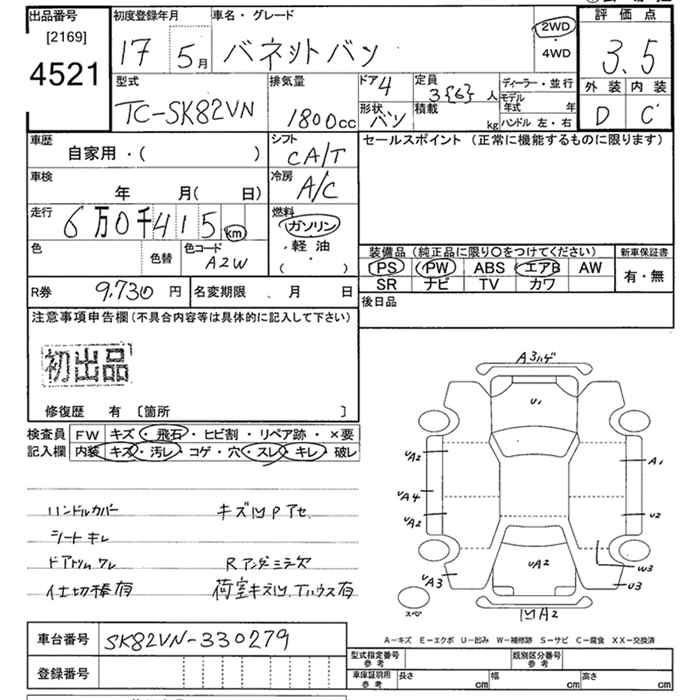 出品番号 初度登録年月 車名・グレード 評価点
[2169]
4521
17 5月 バネットバン 2WD ・ 4WD 3.5
外装 内装
D C
型式 排気量 ドア 4 定員 3{6}人 ディーラー・並行
TC-SK82VN 1800cc 形状 バン 積載 kg モデル年式 年
ハンドル 左・右
車歴 シフト セールスポイント (正常に機能するものに限ります)
自家用・( ) CA/T
車検 冷房
年 月( 日) A/C
走行 燃料
6万0千415km ガソリン
・
軽油
( ・ )
色 色替 色コード
A2W
装備品 (純正品に限り〇をつけてください) 新車保証書
PS PW ABS エアB AW 有・無
SR ナビ TV カワ
R券 9,730円 名変期限 月 日 後日品
注意事項申告欄 (不具合内容等は具体的に記入して下さい)
初出品
修復歴 有 [箇所 ]
検査員 FW キズ・飛石・ヒビ割・リペア跡・×要
記入欄 内装 キズ・汚レ・コゲ・穴・スレ・キレ・破レ
ハンドルカバー キズ凹Pアセ
シートキレ
ドアトリムワレ Rアンダーミラー欠
仕切棒有 荷室キズ凹、Tハウス有
A3ハゲ
U1
UA2 A1
UA4
UA2 U2
UA2
UA3 W3
U3
スペア
凹A2
A-キズ E-エクボ U-凹み W-補修跡 S-サビ C-腐食 XX-交換済
車台番号 SK82VN-330279
登録番号
型式指定番号 参考 類別区分番号 参考
車庫証明用 参考 長さ cm 幅 cm 高さ cm